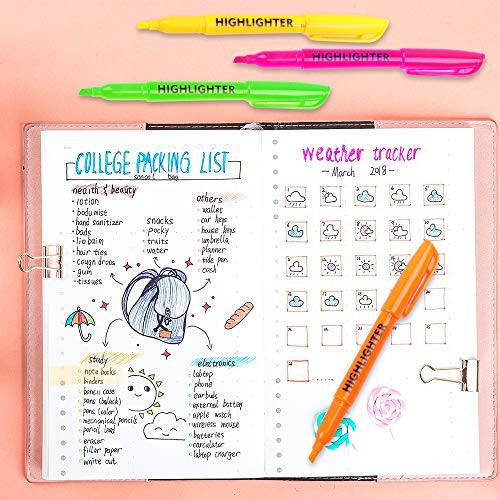 HIGHLIGHTER
HIGHLIGHTER
HIGHLIGHTER
COLLEGE PACKING LIST
school bag
health & beauty
lotion
body mist
hand sanitizer
pads
lip balm
hair ties
cough drops
gum
tissues
snacks
pocky
fruits
water
others
wallet
car keys
house keys
umbrella
planner
tide pen
cash
study
note books
binders
pencil case
pens (black)
pens (color)
mechanical pencils
pencil lead
eraser
filler paper
white out
electronics
labtop
phone
earbuds
external battery
apple watch
wireless mouse
batteries
carculator
labtop charger
weather tracker
March 2018
HIGHLIGHTER